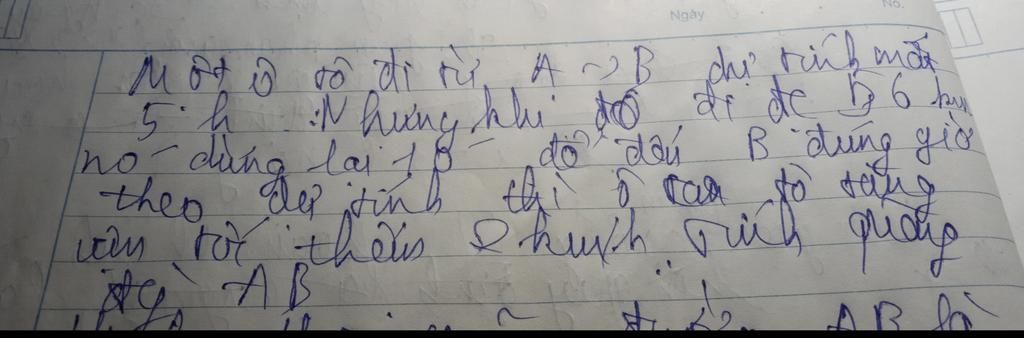 Ngày
No.
Một ô tô đi từ A ~> B dự tính mất
5 h. Nhưng khi đi đc 56 km
nó dừng lại 10' để đến B đúng giờ
theo dự tính thì ô tô tăng
vận tốc thêm 2 km/h Tính quãng
đg AB
AB là